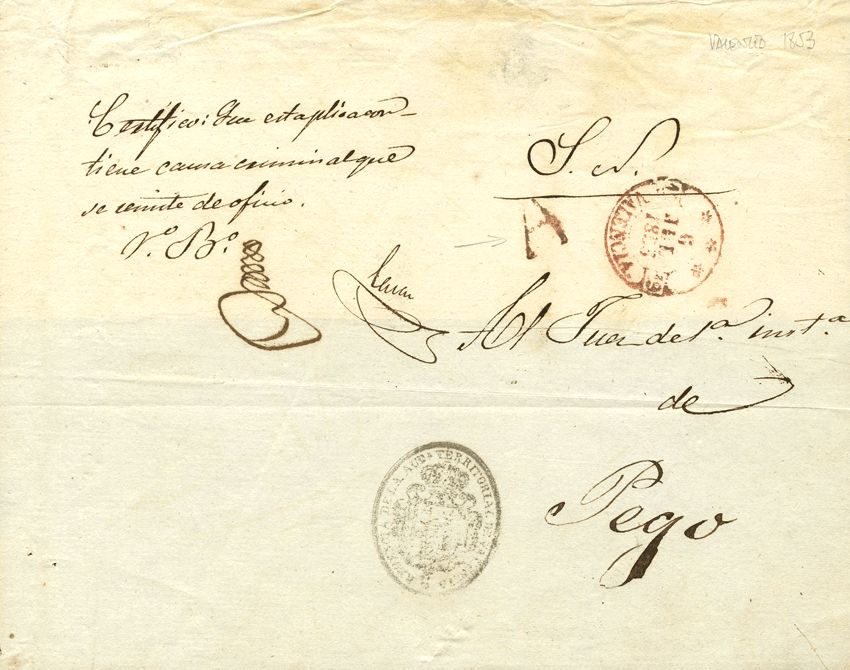 VALENCIA 1853
Certifico: Que esta plica con-
tiene causa criminal que
se remite de oficio.
Vº Bº
S. N.
A
VALENCIA
6
JUL
1853
Al Juez de 1ª instª
de
Pego
DE LA AUDª TERRITORIAL DE